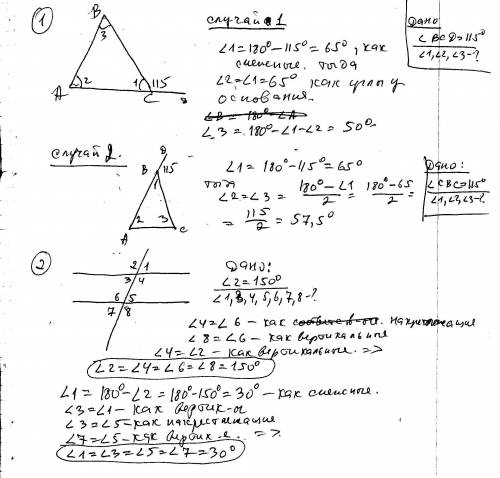 1
B
3
A
2
1
115
C
D
случай 1
∠1 = 180° − 115° = 65°, как
смежные. тогда
∠2 = ∠1 = 65° как углы у
основания.
∠B = 180° − ∠A
∠3 = 180° − ∠1 − ∠2 = 50°
Дано
∠BCD = 115°
∠1, ∠2, ∠3 − ?
случай 2.
D
B
115
1
2
3
A
C
∠1 = 180° − 115° = 65°
тогда
∠2 = ∠3 = (180° − ∠1)/2 = (180° − 65)/2 =
= 115/2 = 57,5°
Дано:
∠CBC = 115°
∠1, ∠2, ∠3 − ?
2
2 1
3 4
6 5
7 8
Дано:
∠2 = 150°
∠1, 3, 4, 5, 6, 7, 8 − ?
∠4 = ∠6 − как накрестлежащие
∠8 = ∠6 − как вертикальные
∠4 = ∠2 − как вертикальные. =>
∠2 = ∠4 = ∠6 = ∠8 = 150°
∠1 = 180° − ∠2 = 180° − 150° = 30° − как смежные.
∠3 = ∠1 − как вертик-е
∠3 = ∠5 − как накрестлежащие
∠7 = ∠5 − как вертик-е. =>
∠1 = ∠3 = ∠5 = ∠7 = 30°